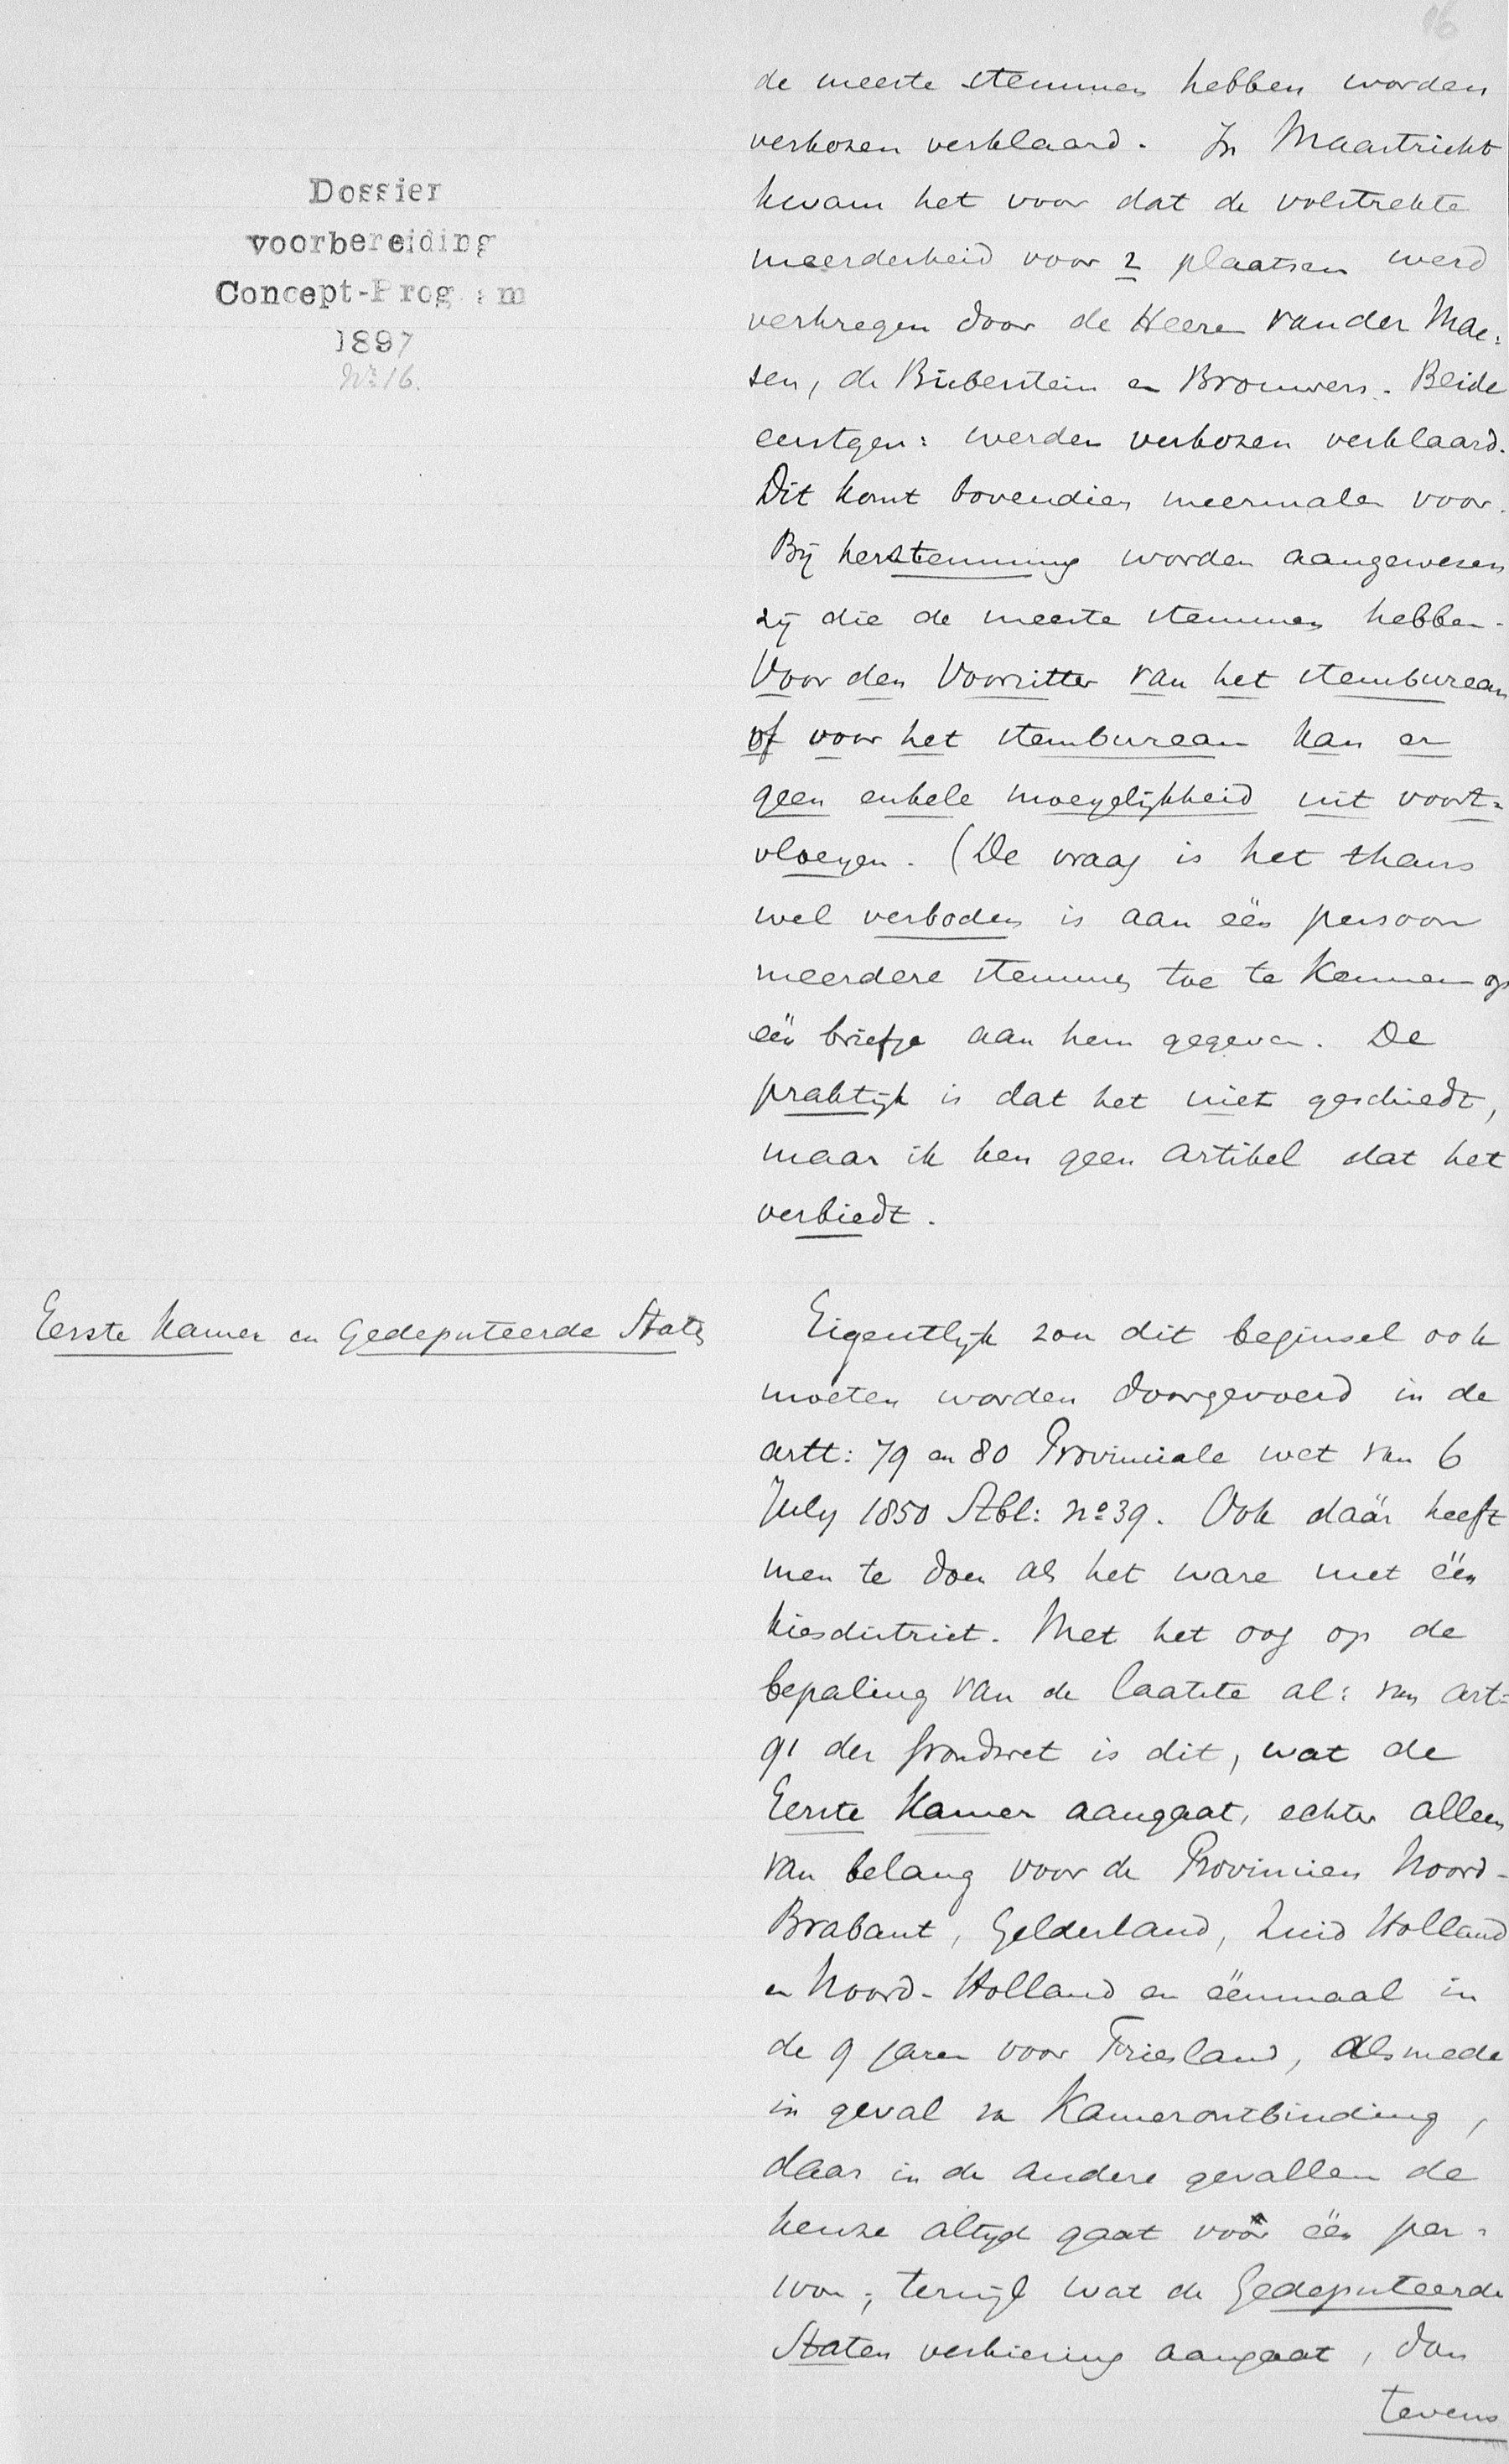 16
de meeste stemmen hebben worden
verkozen verklaard. In Maastricht
kwam het voor dat de volstrekte
meerderheid voor 2 plaatsen werd
verkregen door de Heeren van der Mae:
sen, de Bieberstein en Brouwers. Beide
eerstgen: werden verkozen verklaard.
Dit komt bovendien meermalen voor.
Bij herstemming worden aangewezen
zij die de meeste stemmen hebben.
Voor den Voorzitter van het stembureau
of voor het stembureau kan er
geen enkele moeyelijkheid uit voort=
vloeyen. (De vraag is het thans
wel verboden is aan één persoon
meerdere stemmen toe te kennen op
één briefje aan hem gegeven. De
praktijk is dat het niet geschiedt,
maar ik ken geen artikel dat het
verbiedt.
Dossier
voorbereiding
Concept-Program
1897
No. 16.
Eerste Kamer en Gedeputeerde Staten
Eigentlijk zou dit beginsel ook
moeten worden doorgevoerd in de
artt: 79 en 80 Provinciale wet van 6
July 1850 Stbl: no 39. Ook dáár heeft
men te doen als het ware met één
kiesdistrict. Met het oog op de
bepaling van de laatste al: van art=
91 der grondwet is dit, wat de
Eerste Kamer aangaat, echter alleen
van belang voor de Provincien Noord-
Brabant, Gelderland, Zuid Holland
en Noord-Holland en éénmaal in
de 9 jaren voor Friesland, alsmede
in geval van Kamerontbinding,
daar in de andere gevallen de
keuze altijd gaat voor één per-
soon; terwijl wat de Gedeputeerde
Staten verkiezing aangaat, dan
tevens